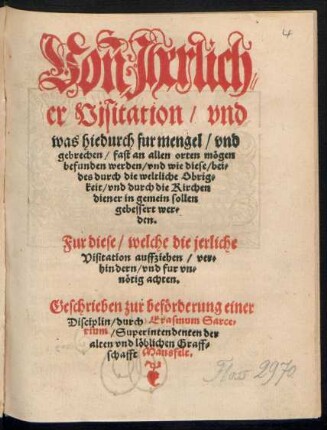 4
Von Jherlich
er Visitation / vnd
was hiedurch fur mengel / vnd
gebrechen / fast an allen orten mögen
befunden werden / vnd wie diese / bei⸗
des durch die weltliche Obrig⸗
keit / vnd durch die Kirchen
diener in gemein sollen
gebessert wer⸗
den.
Fur diese / welche die jerliche
Visitation auffziehen / ver⸗
hindern / vnd fur vn⸗
nötig achten.
Geschrieben zur beförderung einer
Disciplin / durch Erasmum Sarce⸗
rium / Superintendenten der
alten vnd löblichen Graff⸗
schafft Mansfelt.
2970